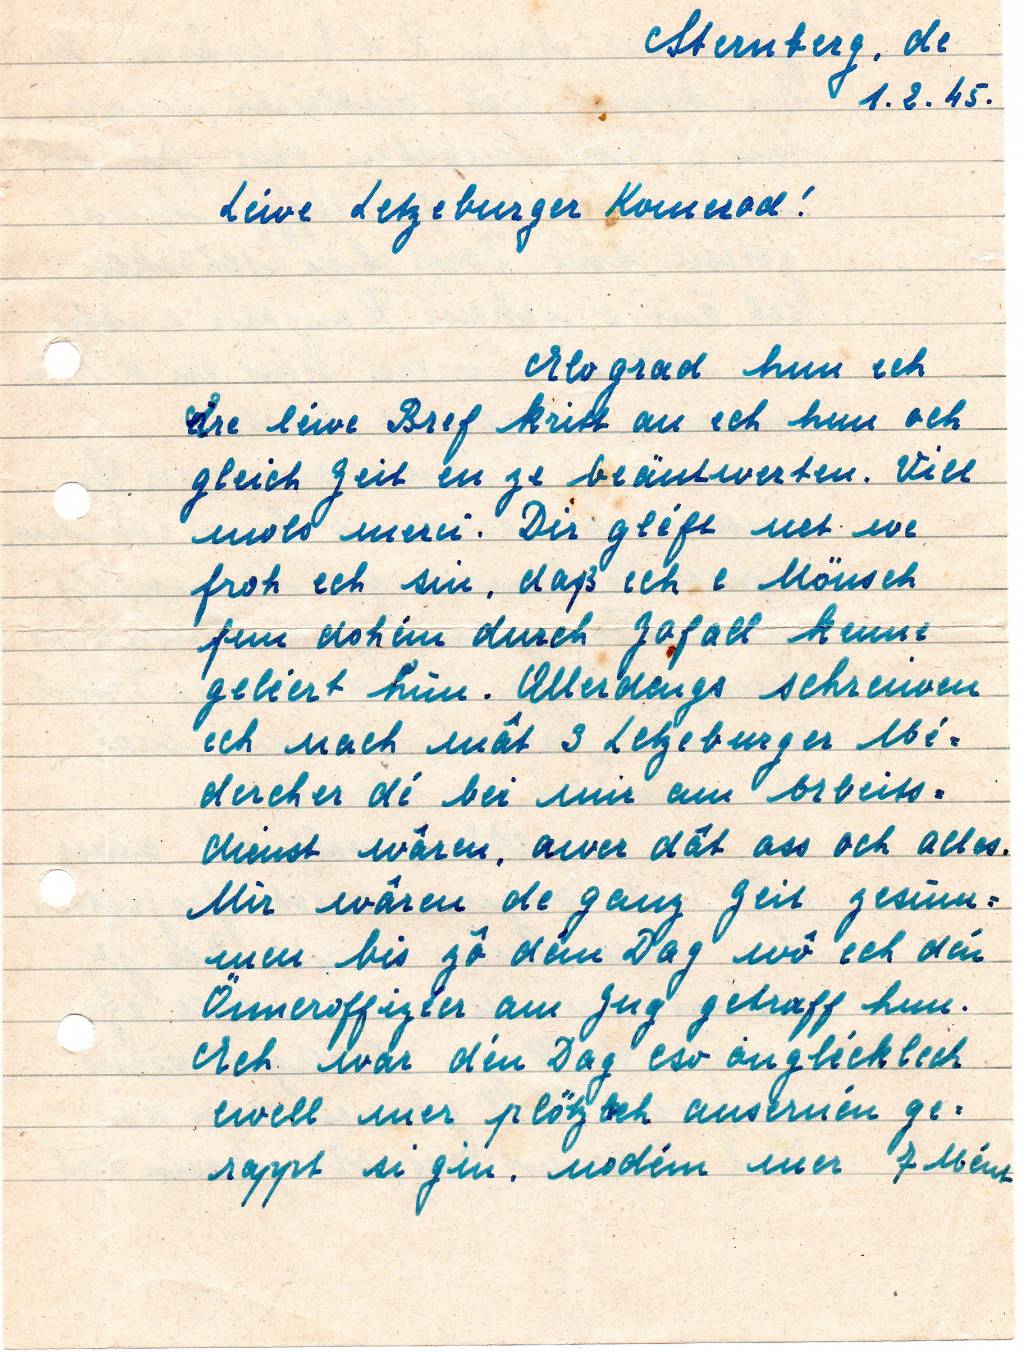 Sternberg, de
1.2.45.
Léiwe Letzeburger Komerod!
Elo grad hun ech
Äre léiwe Bref kritt an ech hun och
gleich Zeit en ze beäntwerten. Vill
mols merci. Dir gléft net we
froh ech sin, daß ech e Mönsch
fun dohém durch Zofall kenne
geléert hun. Allerdengs schreiwen
ech nach mât 3 Letzeburger Mé-
dercher dé bei mir am Arbeits-
dienst wâren, awer dât ass och alles.
Mir wâren de ganz Zeit zesum-
men bis zô dém Dag wô ech dén
Önneroffizéer am Zug getraff hun.
Ech war dén Dag eso onglécklech
ewell mer plötzlech ausernén ge-
rappt si gin, nodém mer 7 Mént